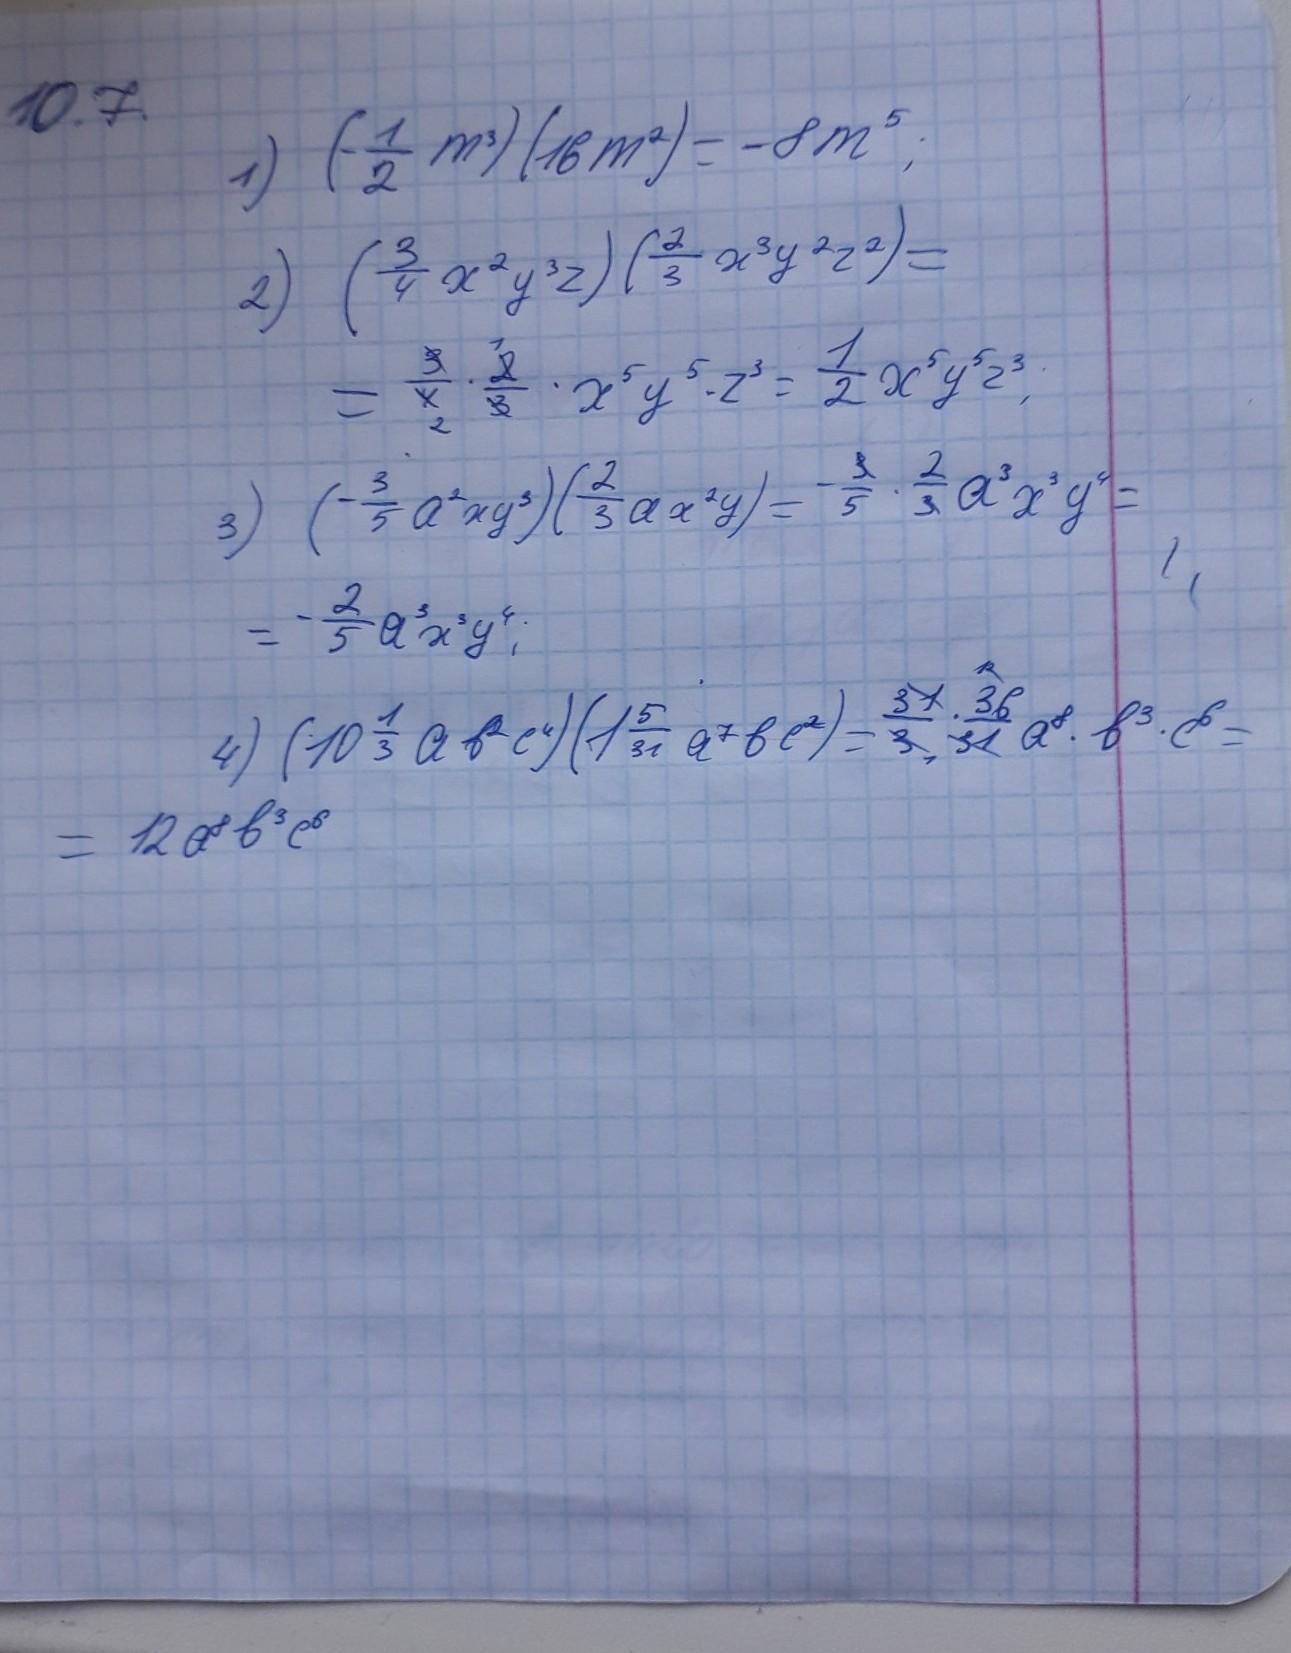 10.7.
1) (-1/2 m³)(16m²) = -8m⁵;
2) (3/4 x²y³z)(2/3 x³y²z²) =
= 3/4 2 · 2 1/3 · x⁵y⁵·z³ = 1/2 x⁵y⁵z³;
3) (-3/5 a²xy³)(2/3 ax²y) = -3/5 · 2/3 a³x³y⁴ =
= -2/5 a³x³y⁴;
4) (10 1/3 ab²c⁴)(1 5/31 a⁷bc²) = 31/3 1 · 36 12/31 a⁸·b³·c⁶ =
= 12a⁸b³c⁶